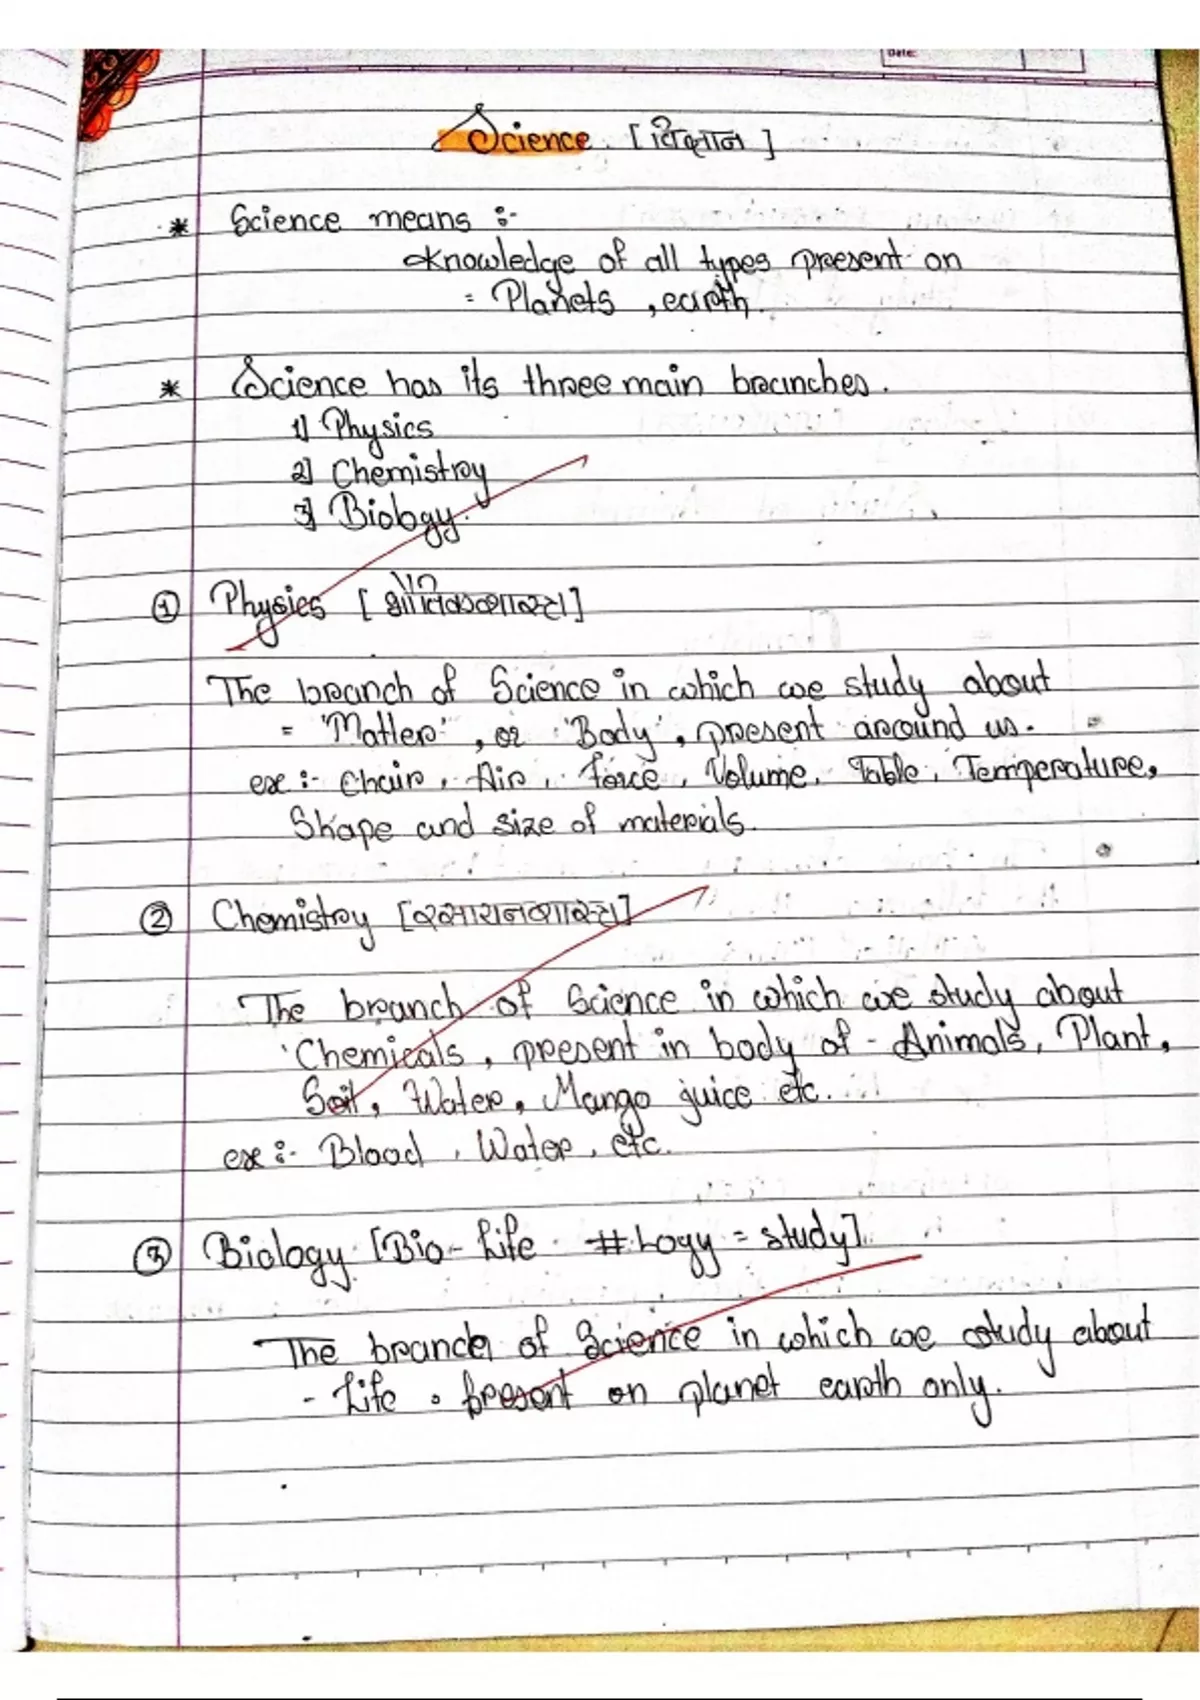 Date:
Science [विज्ञान]
* Science means :-
Knowledge of all types present on
= Planets , earth.
* Science has its three main branches.
1) Physics
2) Chemistry
3) Biology.
① Physics [भौतिकशास्त्र]
The branch of Science in which we study about
= 'Matter' , or 'Body' , present around us.
ex :- Chair , Air , Force , Volume , Table , Temperature,
Shape and size of materials.
② Chemistry [रसायनशास्त्र]
The branch of Science in which we study about
'Chemicals , present in body of - Animals, Plant,
Soil, Water, Mango juice etc.
ex :- Blood , Water , etc.
③ Biology [Bio - Life # Logy = study].
The branch of Science in which we study about
- Life . present on planet earth only.